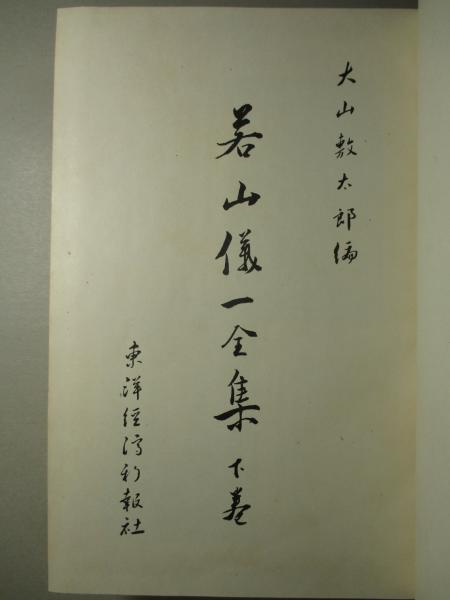 大山敷太郎編
若山儀一全集 下巻
東洋経済新報社